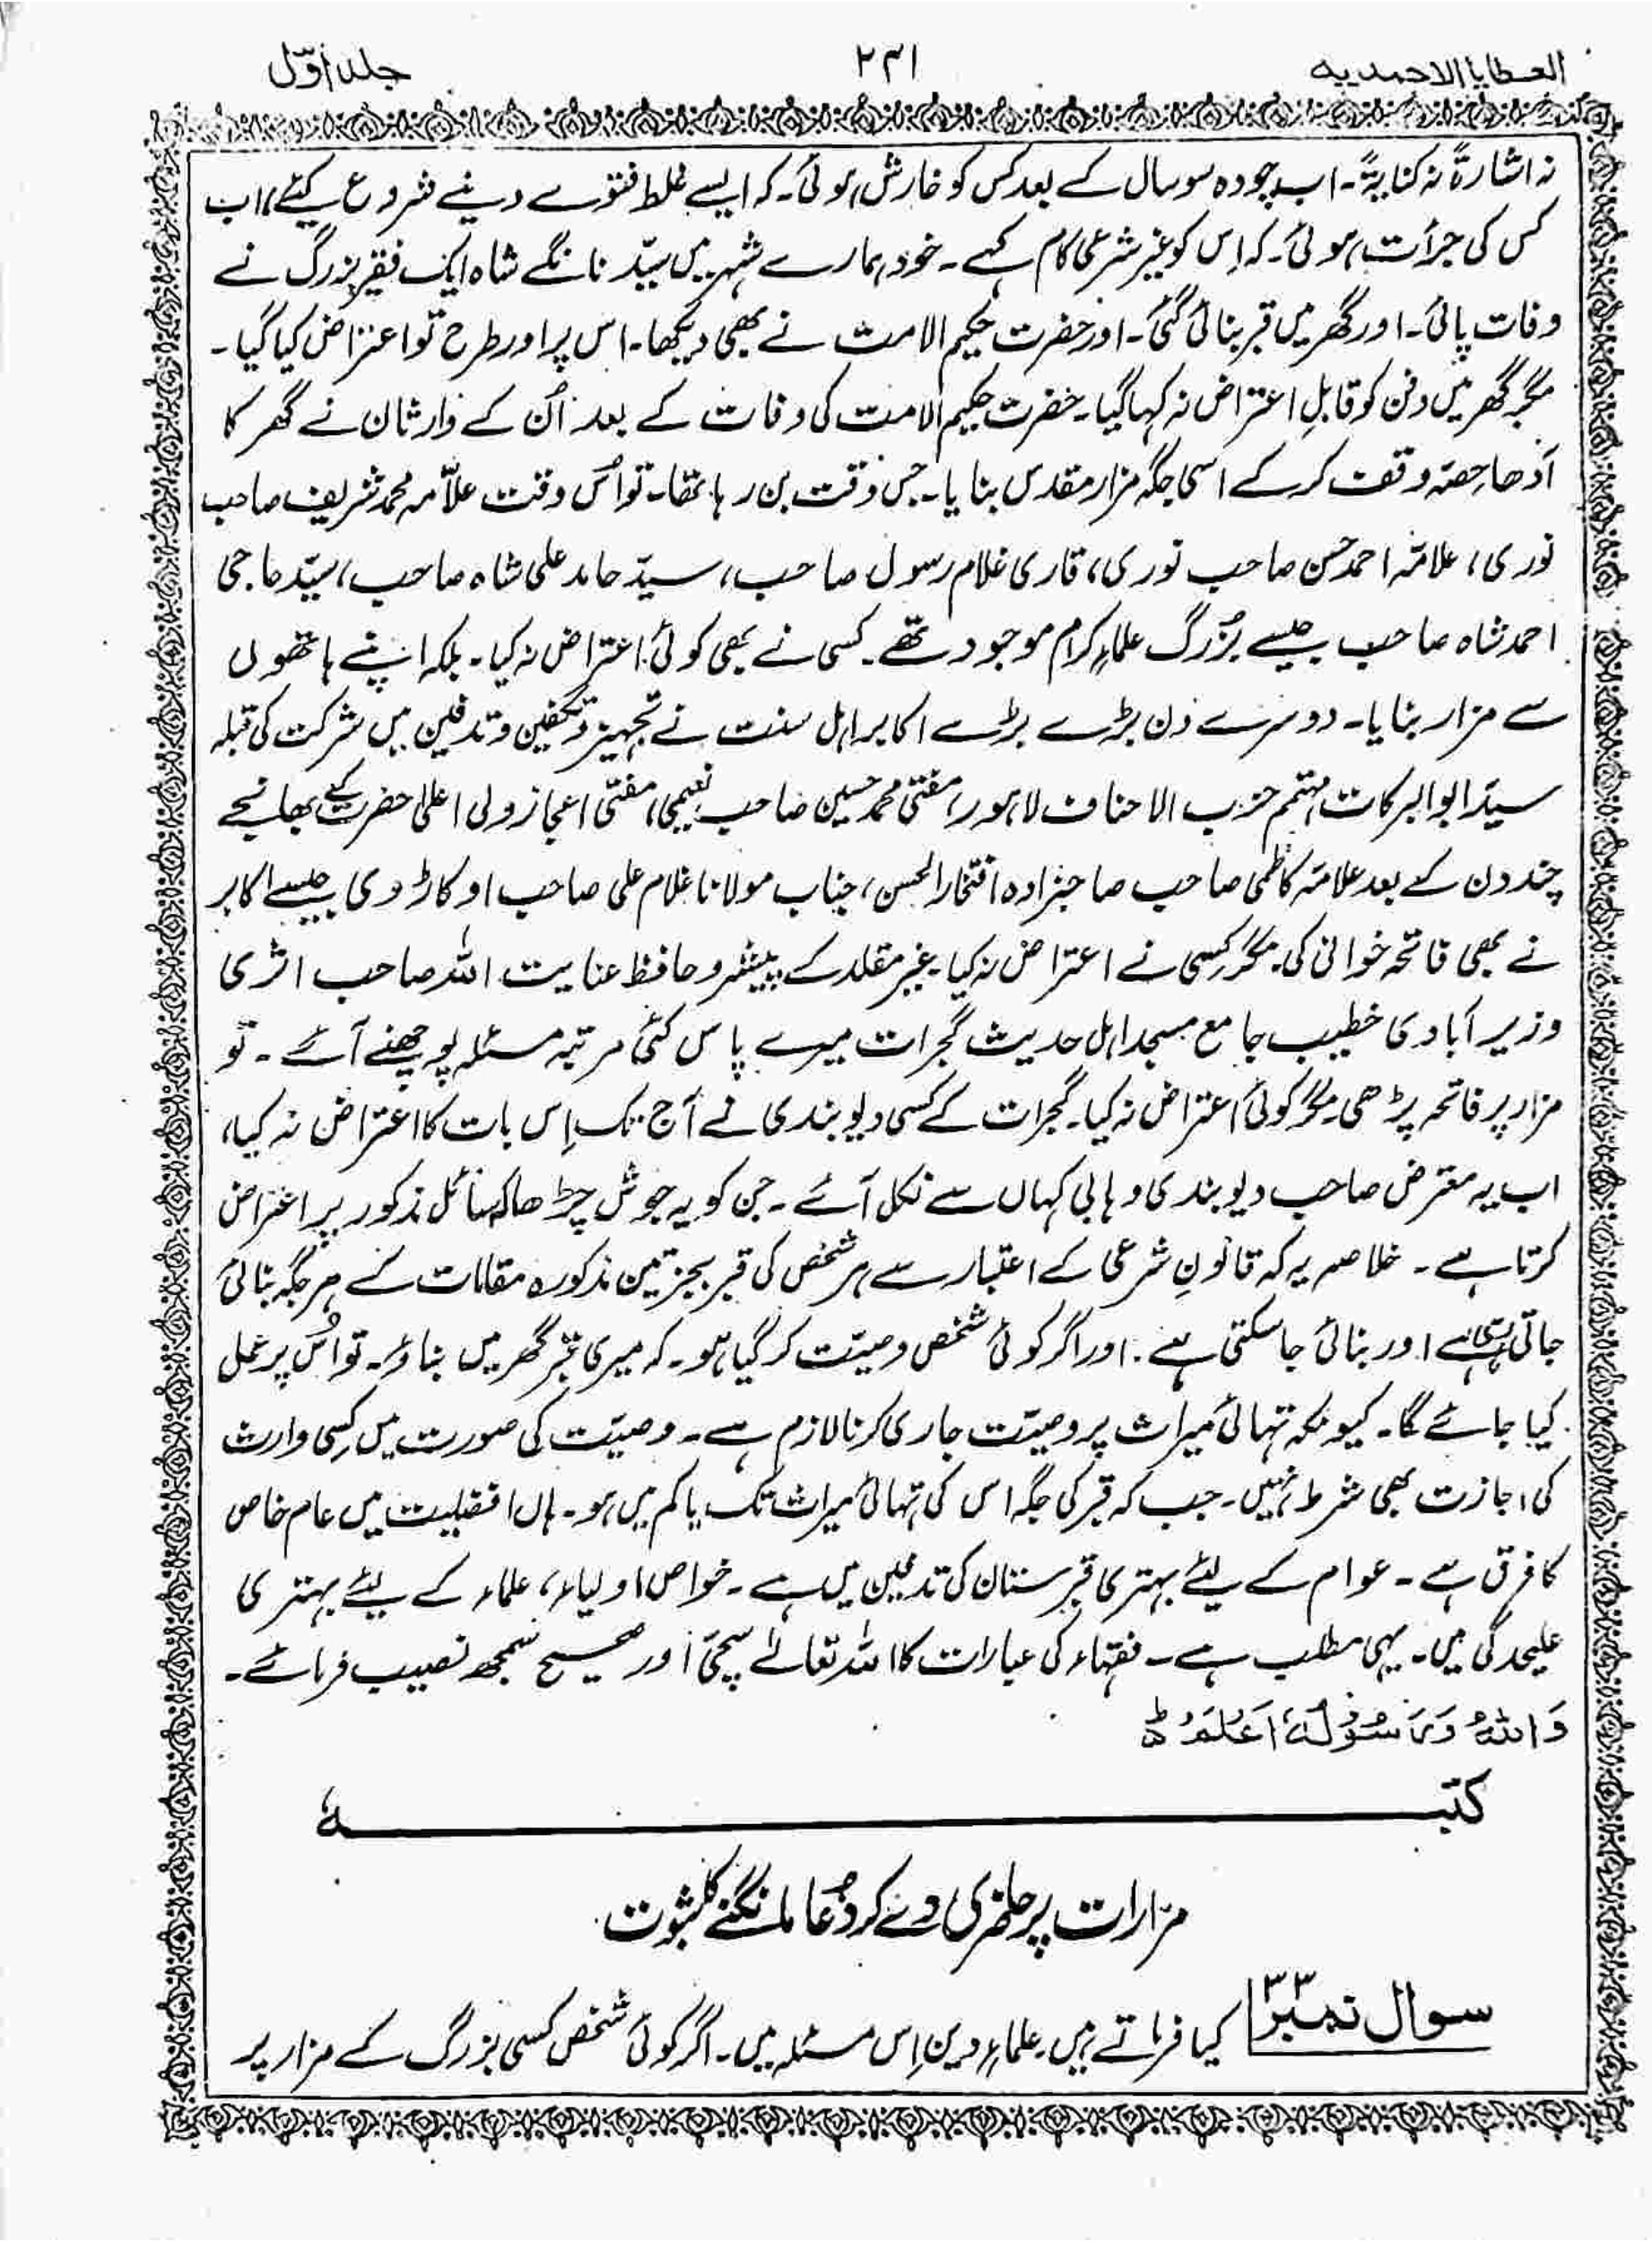 العطایا الاحمدیہ ۲۳۱ جلد اوّل
نہ اشارۃً نہ کنایۃً۔ اب چودہ سو سال کے بعد کس کو خارش ہوئی۔ کہ ایسے غلط فتوے دینے شروع کیئے، اب
کس کی جرأت ہوئی۔ کہ اِس کو غیر شرعی کام کہے۔ خود ہمارے شہر میں سیّد نانگے شاہ ایک فقیر بزرگ نے
وفات پائی۔ اور گھر میں قبر بنائی گئی۔ اور حضرت حکیم الامت نے بھی دیکھا۔ اس پر اور طرح تو اعتراض کیا گیا۔
مگر گھر میں دفن کو قابلِ اعتراض نہ کہا گیا۔ حضرت حکیم الامت کی وفات کے بعد اُن کے وارثان نے گھر کا
آدھا حصّہ وقف کر کے اسی جگہ مزار مقدس بنایا۔ جس وقت بن رہا تھا۔ تو اُس وقت علاّمہ محمد شریف صاحب
نوری، علامّہ احمد حسن صاحب نوری، قاری غلام رسول صاحب، سیدّ حامد علی شاہ صاحب، سیّد حاجی
احمد شاہ صاحب جیسے بزُرگ علماءِ کرام موجود تھے۔ کسی نے بھی کوئی اعتراض نہ کیا۔ بلکہ اپنے ہاتھوں
سے مزار بنایا۔ دوسرے دن بڑے بڑے اکابر اہل سنت نے تجہیز و تکفین و تدفین میں شرکت کی قبلہ
سیدّ ابو البرکات مہتمم حزب الاحناف لاہور، مفتی محمد حسین صاحب نعیمی، مفتی اعجاز ولی اعلیٰ حضرت کے بھانجے
چند دن کے بعد علامّہ کاظمی صاحب صاحبزادہ افتخار الحسن، جناب مولانا غلام علی صاحب اوکاڑوی جیسے اکابر
نے بھی فاتحہ خوانی کی۔ مگر کِسی نے اعتراض نہ کیا۔ غیر مقلد کے پیشرو حافظ عنایت اللہ صاحب اثری
وزیر آبادی خطیب جامع مسجد اہل حدیث گجرات میرے پاس کئی مرتبہ مسئلہ پوچھنے آئے۔ تو
مزار پر فاتحہ پڑھی۔ مگر کوئی اعتراض نہ کیا۔ گجرات کے کسی دیوبندی نے آج تک اِس بات کا اعتراض نہ کیا،
اب یہ معترض صاحب دیوبندی وہابی کہاں سے نکل آئے۔ جن کو یہ جوش چڑھا کہ سائل مذکور پر اعتراض
کرتا ہے۔ خلاصہ یہ کہ قانونِ شرعی کے اعتبار سے ہر شخص کی قبر بجز تین مذکورہ مقامات کے ہر جگہ بنائی
جاتی رہی ہے اور بنائی جا سکتی ہے۔ اور اگر کوئی شخص وصیّت کر گیا ہو۔ کہ میری قبر گھر میں بناؤ۔ تو اُس پر عمل
کیا جائے گا۔ کیونکہ تہائی میراث پر وصیّت جاری کرنا لازم ہے۔ وصیّت کی صورت میں کِسی وارث
کی اجازت بھی شرط نہیں۔ جب کہ قبر کی جگہ اس کی تہائی میراث تک یا کم میں ہو۔ ہاں افضلیت میں عام خاص
کا فرق ہے۔ عوام کے لیئے بہتری قبرستان کی تدفین میں ہے۔ خواص اولیاء، علماء کے لیئے بہتری
علیحدگی میں۔ یہی مطلب ہے۔ فقہاء کی عبارات کا اللہ تعالےٰ سچی اور صحیح سمجھ نصیب فرمائے۔
وَاللہُ وَرَسُوْلُہٗ اَعْلَمُ ؕ
کتبـــــہٗ
مزارات پر حاضری دے کر دُعا مانگنے کا ثبوت
سوال نمبر ۳۳ کیا فرماتے ہیں علماءِ دین اِس مسئلہ میں۔ اگر کوئی شخص کسی بزرگ کے مزار پر